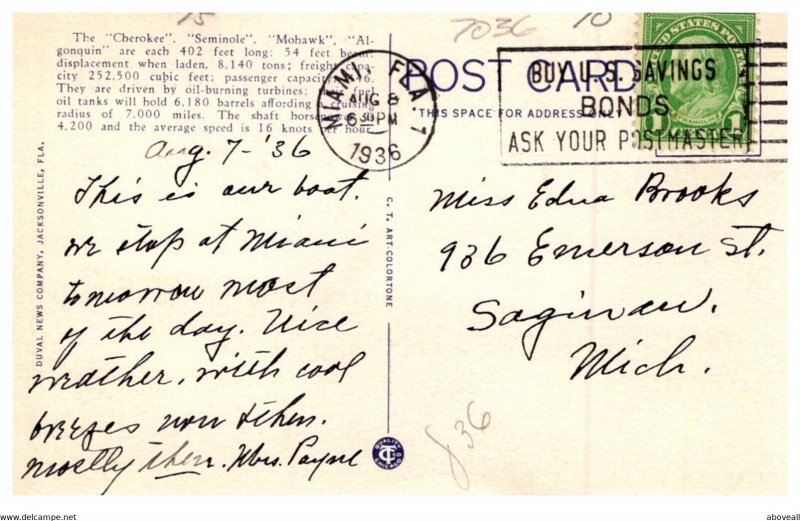 15
7036
10
The "Cherokee", "Seminole", "Mohawk", "Al-
gonquin" are each 402 feet long; 54 feet beam;
displacement when laden, 8,140 tons; freight capa-
city 252,500 cubic feet; passenger capacity 446.
They are driven by oil-burning turbines; their fuel
oil tanks will hold 6,180 barrels affording a cruising
radius of 7,000 miles. The shaft horsepower is
4,200 and the average speed is 16 knots per hour.
MIAMI, FLA. 1
AUG 8
6 30 PM
1936
POST CARD
THIS SPACE FOR ADDRESS ONLY
BUY U. S. SAVINGS
BONDS
ASK YOUR POSTMASTER
UNITED STATES POSTAGE
FRANKLIN
1
Aug. 7 - '36
This is our boat.
we stop at Miami
tomorrow most
of the day. Nice
weather, with cool
breezes now & then.
mostly then. Mrs. Payne
Miss Edna Brooks
936 Emerson St.
Saginaw.
Mich.
836
DUVAL NEWS COMPANY, JACKSONVILLE, FLA.
C. T. ART-COLORTONE
QUALITY
CT CO
CHICAGO
https://www.hippostcard.com
aboveall